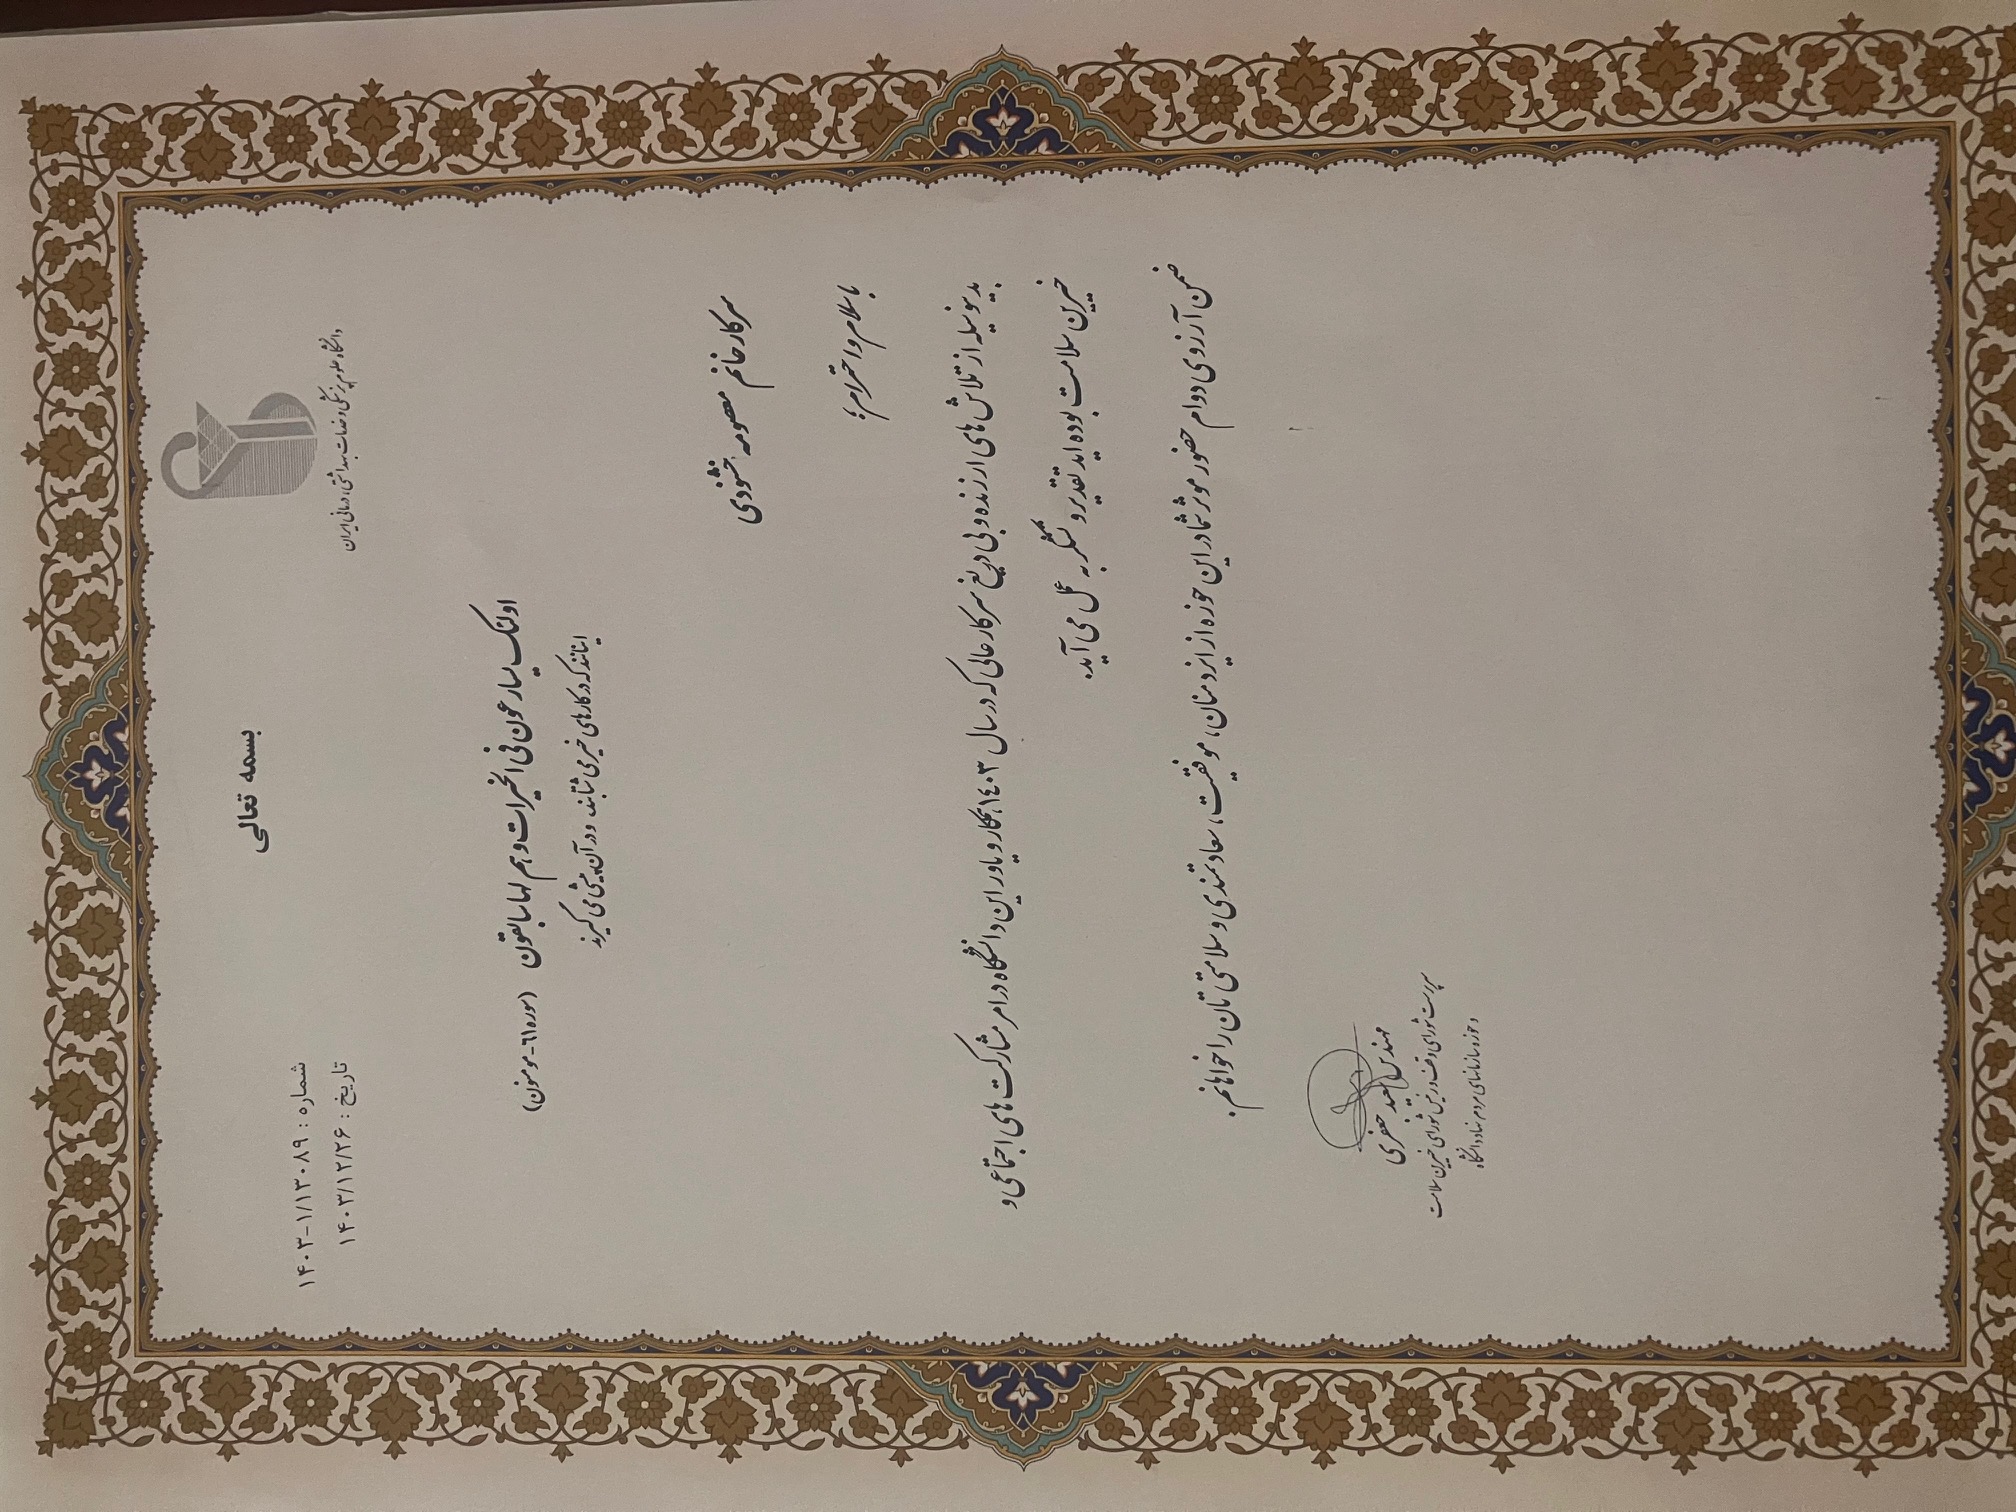 بسمه تعالی
شماره : ۱۴۰۳-۱/۱۳۰۸۹
تاریخ : ۱۴۰۳/۱۲/۲۶
دانشگاه علوم پزشکی و خدمات بهداشتی، درمانی ایران
اولئک یسارعون فی الخیرات و هم لها سابقون (سوره ٦١- مومنون)
اینانند که در کارهای خیر می شتابند و در آن پیشی می گیرند
سرکار خانم معصومه خشنودی
با سلام و احترام؛
بدینوسیله از تلاش های ارزنده و بی دریغ سرکار عالی که در سال ١٤٠٣، همکار و یاور این دانشگاه در امر مشارکت های اجتماعی و
خیرین سلامت بوده اید تقدیر و تشکر به عمل می آید.
ضمن آرزوی دوام حضور موثر شما در این حوزه از ایزد منان، موفقیت، سعادتمندی و سلامتی تان را خواهانم.
مهندس سعید جعفری
سرپرست شورای وقف و رئیس شورای خیرین سلامت
و حوزه سازمانهای مردم نهاد دانشگاه